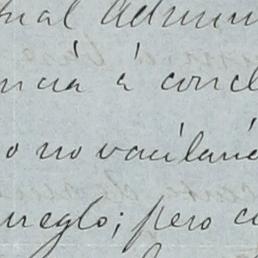 nal Adminis
ncia á concl
o no vacilaria
rreglo; pero c